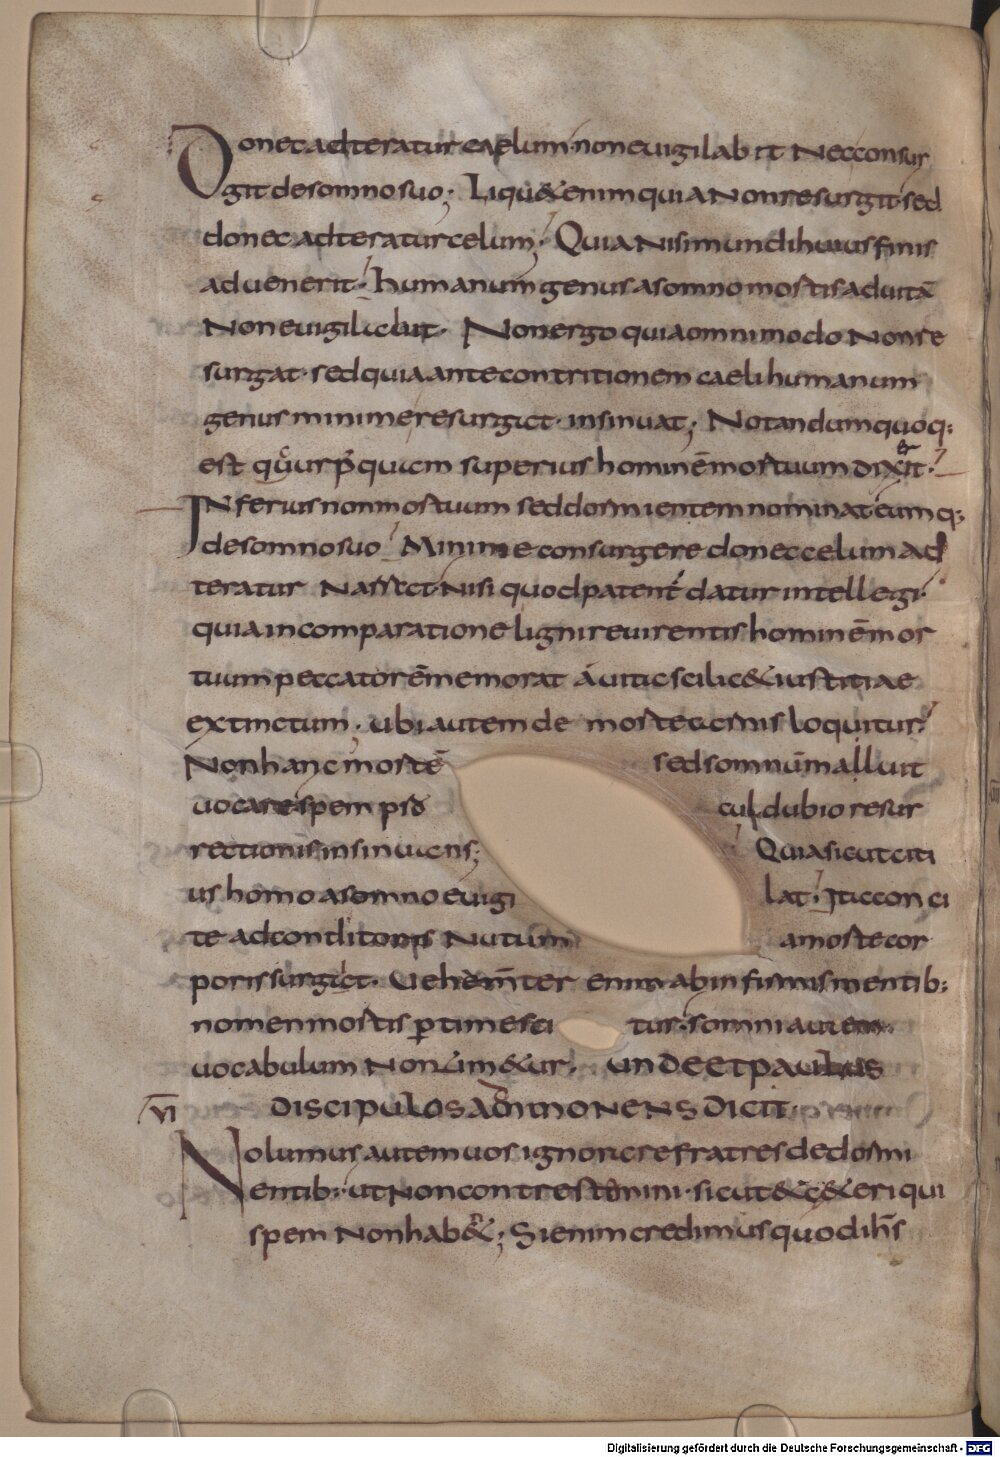 Donec adteratur caelum non euigilabit Nec consur
git de somno suo; Liqu& enim quia Non resurgit sed
donec adteratur celum; Quia Nisi mundi huius finis
aduenerit. humanum genus a somno mortis ad uitā
Non euigilabit. Non ergo quia omnimodo Non re
surgat sed quia ante contritionem caeli humanum
genus minime resurgat insinuat; Notandum quoq:
est superius hominē mortuum dixerit.
Inferius non mortuum sed dormientem nominat eumq;
de somno suo Minime consurgere donec celum ad
teratur Nisi quod patent datur intellegi.
quia in comparatione ligni reuirentis hominē mor
tuum peccatorē memorat a uita scilic& iustitiae
extinctum; ubi autem de morte carnis loquitur
Non hanc mortē sed somnūm alluit
uocare spem cul dubio resur
rectionis insinuans; Quia sicut citi
us homo a somno euigi lat. Ita con ci
te ad conditoris Nutum a morte cor
poris surgit. Uehem̄ter enim ab infirmis mentib:
nomen mortis ꝑtimesci tur. somni autem
uocabulum Non tim&ur. UNDE ET PAULUS
VI DISCIPULOS ADMONENS DICIT
Nolumus autem uos ignorare fratres de dormi
entib: ut Non contrestemini. sicut & c&eri qui
spem Non hab&; Si enim credimus quod ih̄s
Digitalisierung gefördert durch die Deutsche Forschungsgemeinschaft - DFG